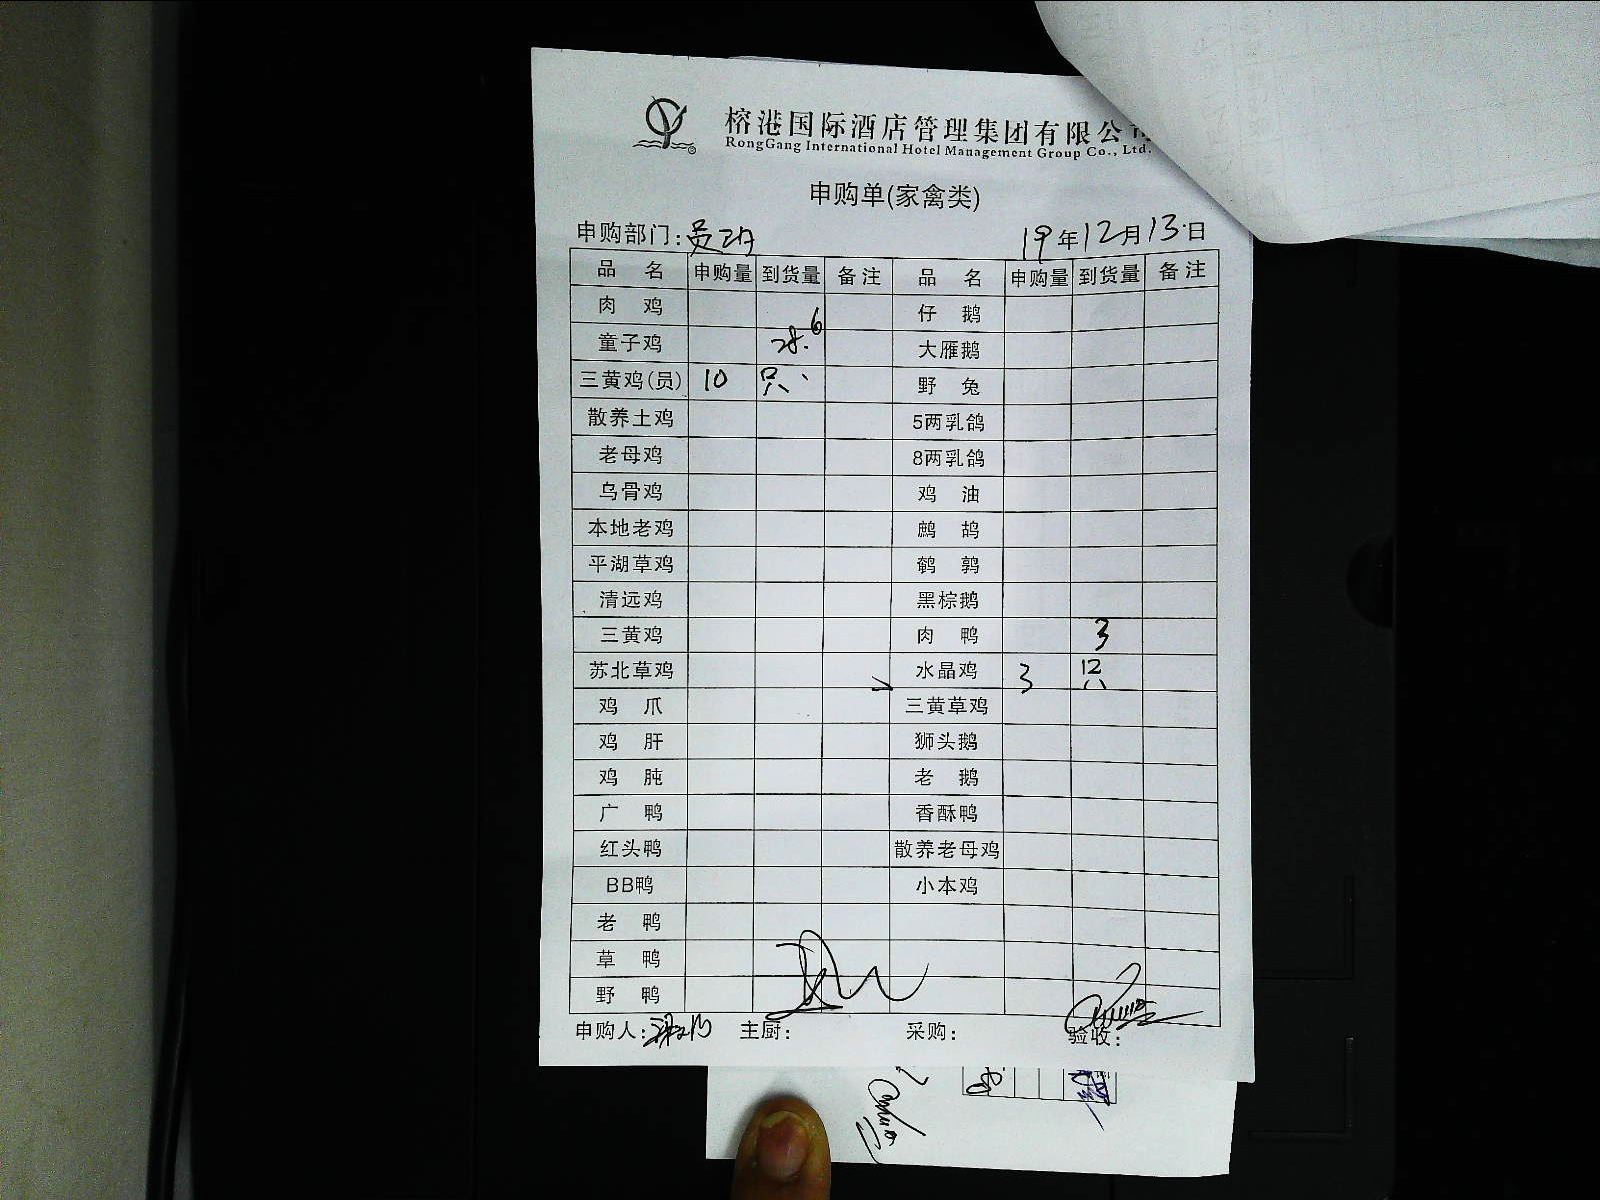 榕港国际酒店管理集团有限公
RongGang International Hotel Management Group Co., Ltd.
申购单(家禽类)
申购部门: 19年12月13日
品名 申购量 到货量 备注 品名 申购量 到货量 备注
肉鸡 仔鹅
童子鸡 28.6 大雁鹅
三黄鸡(员) 10 只 野兔
散养土鸡 5两乳鸽
老母鸡 8两乳鸽
乌骨鸡 鸡油
本地老鸡 鹧鸪
平湖草鸡 鹌鹑
清远鸡 黑棕鹅
三黄鸡 肉鸭 3
苏北草鸡 水晶鸡 3 只
鸡爪 三黄草鸡
鸡肝 狮头鹅
鸡肫 老鹅
广鸭 香酥鸭
红头鸭 散养老母鸡
BB鸭 小本鸡
老鸭
草鸭
野鸭
申购人: 主厨: 采购: 验收: